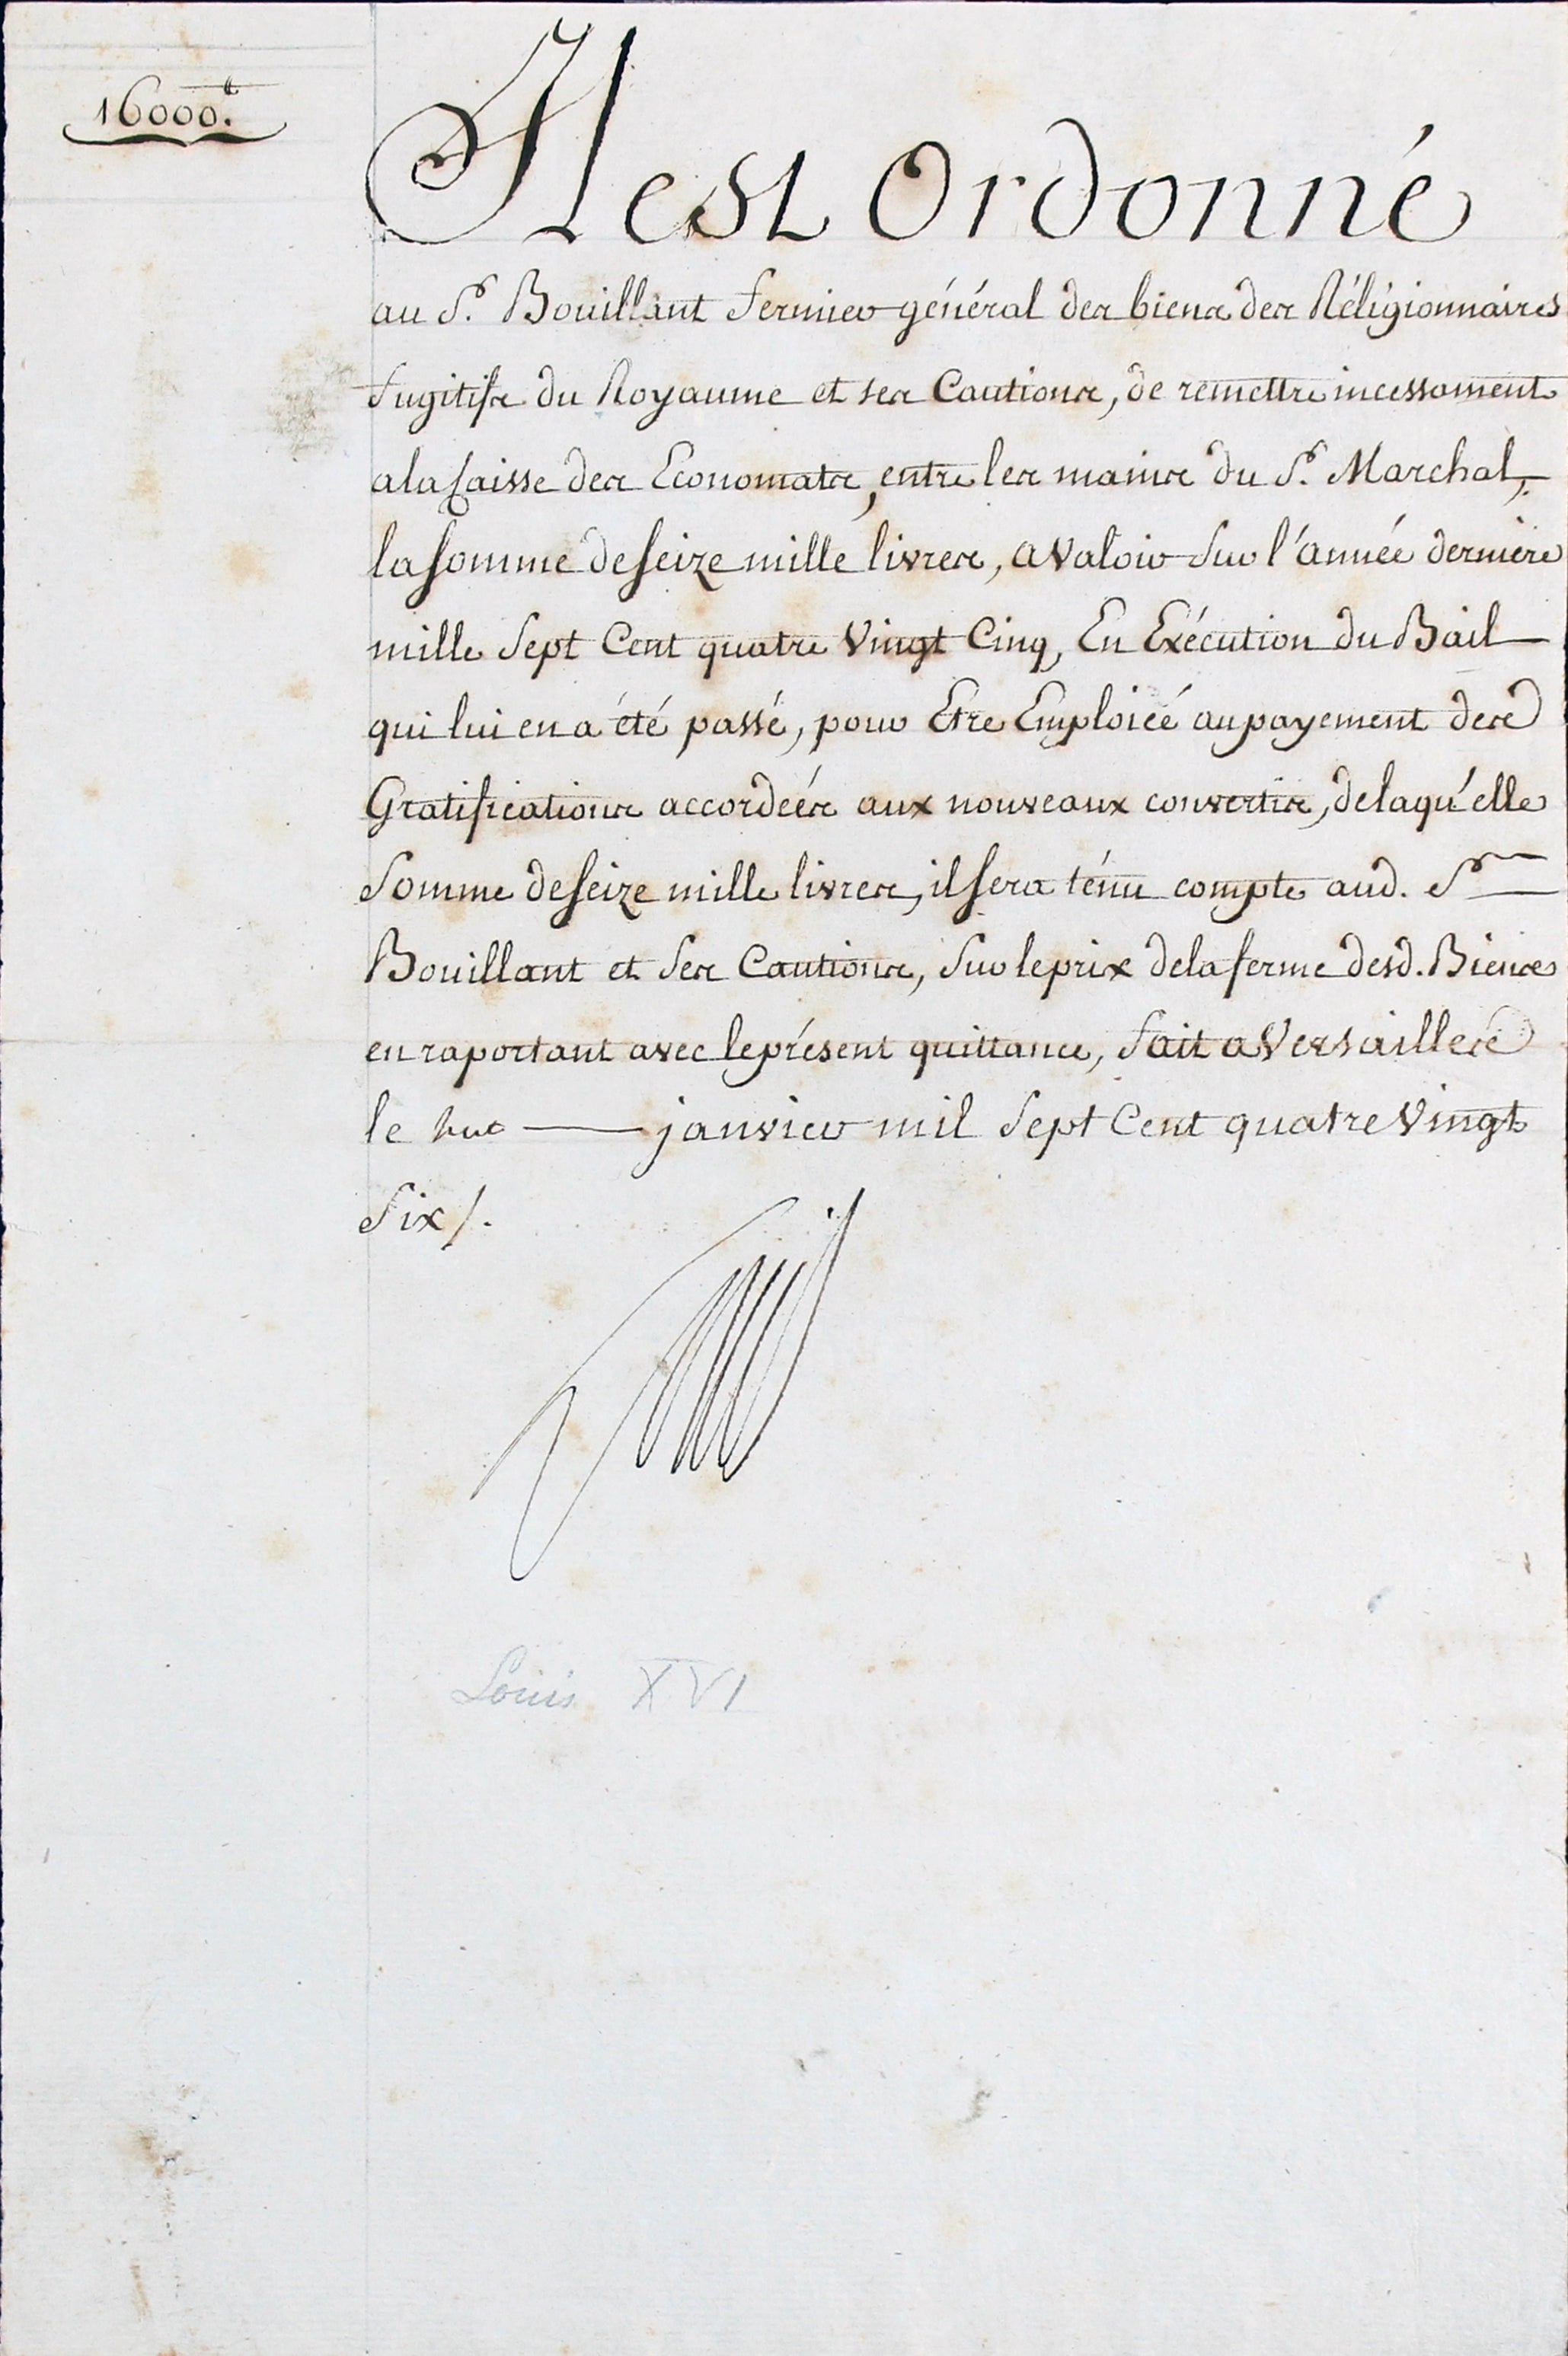 16000.ₜₜ
Il est Ordonné
au Sr. Bouillant fermier général des biens des Réligionnaires
fugitifs du Royaume et ses Cautions, de remettre incessament
a la Caisse des Economats, entre les mains du Sr. Marchal,
la somme de seize mille livres, a valoir sur l'année derniere
mille Sept Cent quatre Vingt Cinq, En Exécution du Bail
qui lui en a été passé, pour Etre Emploiéé au payement des
Gratifications accordeés aux nouveaux convertis, de laqu'elle
Somme de seize mille livres, il sera ténu compte aud. Sr
Bouillant et Ses Cautions, Sur le prix de la ferme desd. Biens
en raportant avec le présent quittance, fait a Versailles
le huit janvier mil Sept Cent quatre Vingt
Six /.
Louis XVI